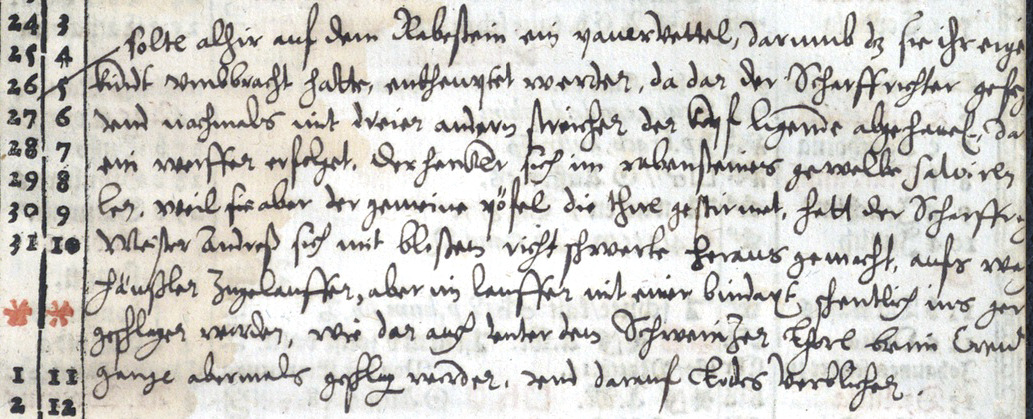 24 3
solte alhir auf dem Rabestein ein paurvettel, darumb dz sie ihr eige
25 4
26 5 kindt umbbracht hatte, entheuptet werden, da dan der Scharffrichter gefe
27 6 und nochmals mit dreien andern streichen den kopf ligende abgehauet, da
28 7 ein werffen erfolget, der henker sich im rabensteines gewelbe salvirn
29 8
30 9 len, weil sie aber der gemeine pöfel die thür gestürmet, hatt der Scharffri
31 10 Meister Andreß sich mit blossem richtschwerte heraus gemacht, aufs
heußlen zugelauffen, aber im lauffen mit einer bindaxt, ins
geschlagen worden, wie dan auch unter dem Schweinizer Thore beim
1 11 gange abermals geschlagen worden, und darauf Todes verblichen
2 12